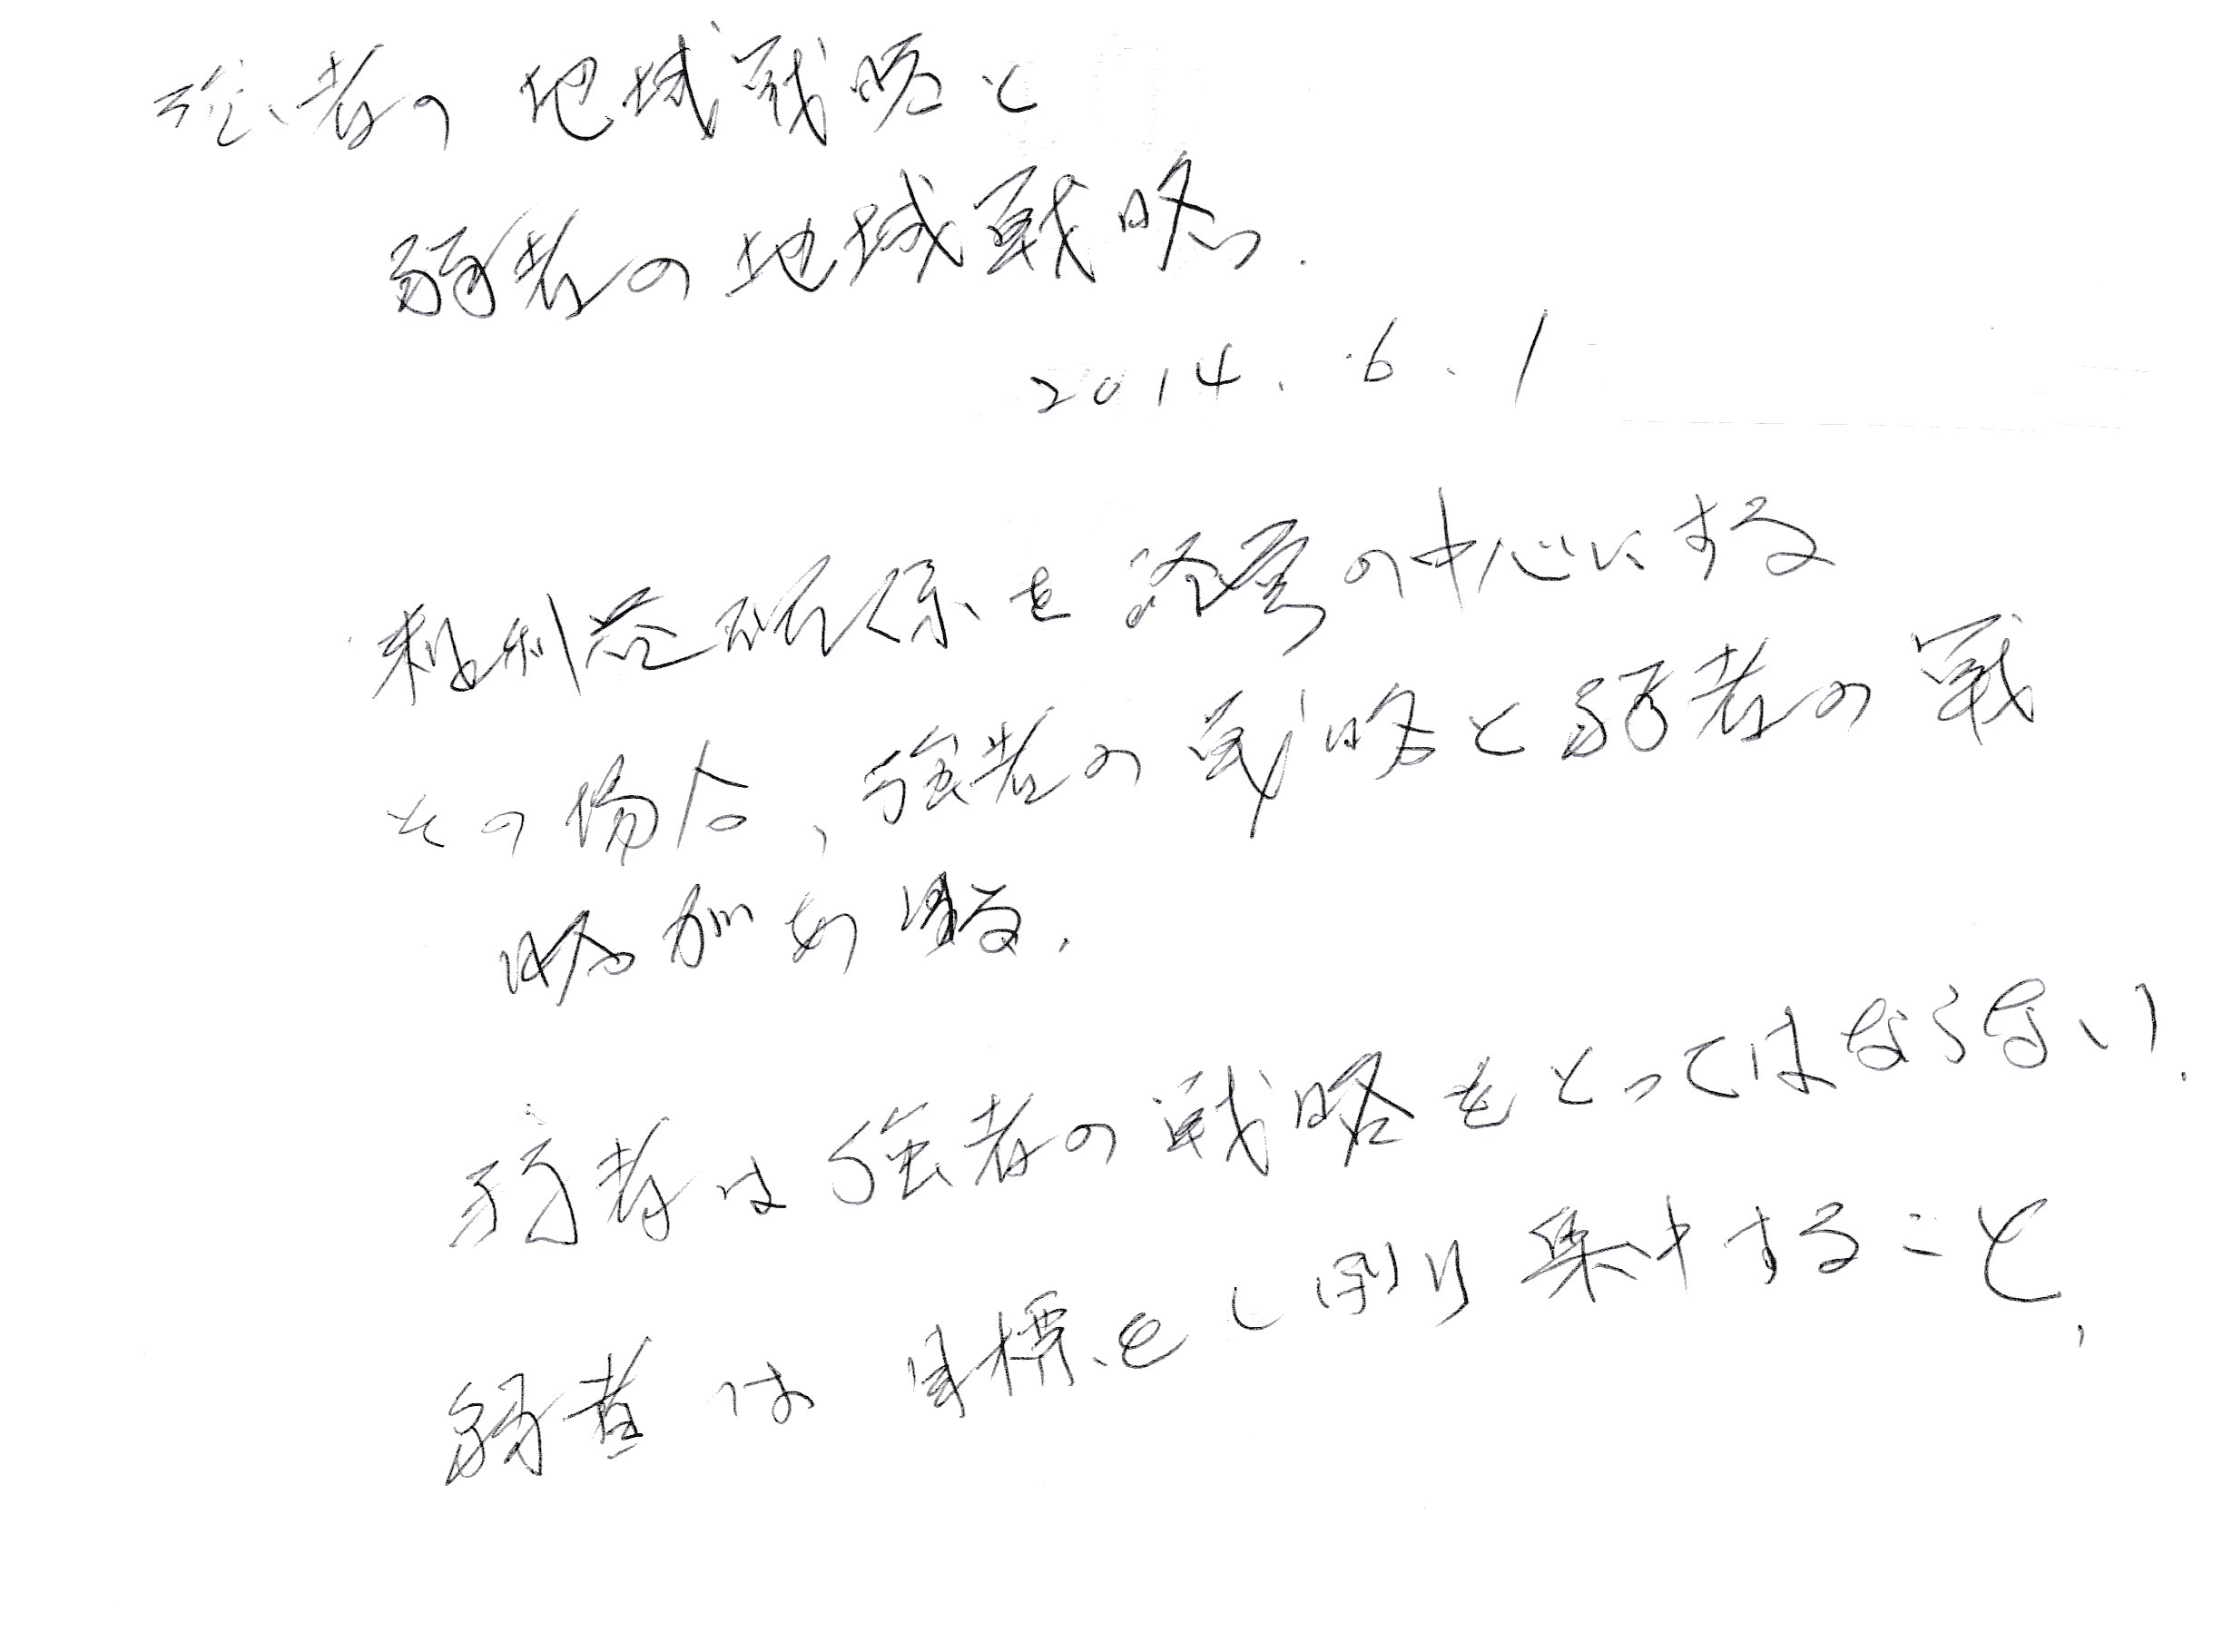 強者の地域戦略と
弱者の地域戦略.
2014.6.1
粗利益関係を経営の中心にする
その場合、強者の戦略と弱者の戦
略がある.
弱者は強者の戦略をとってはならない.
弱者は目標をし割り集中すること、